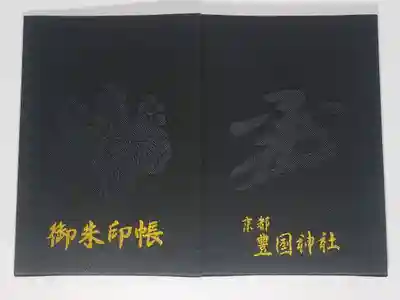 御朱印帳
京都
豊国神社